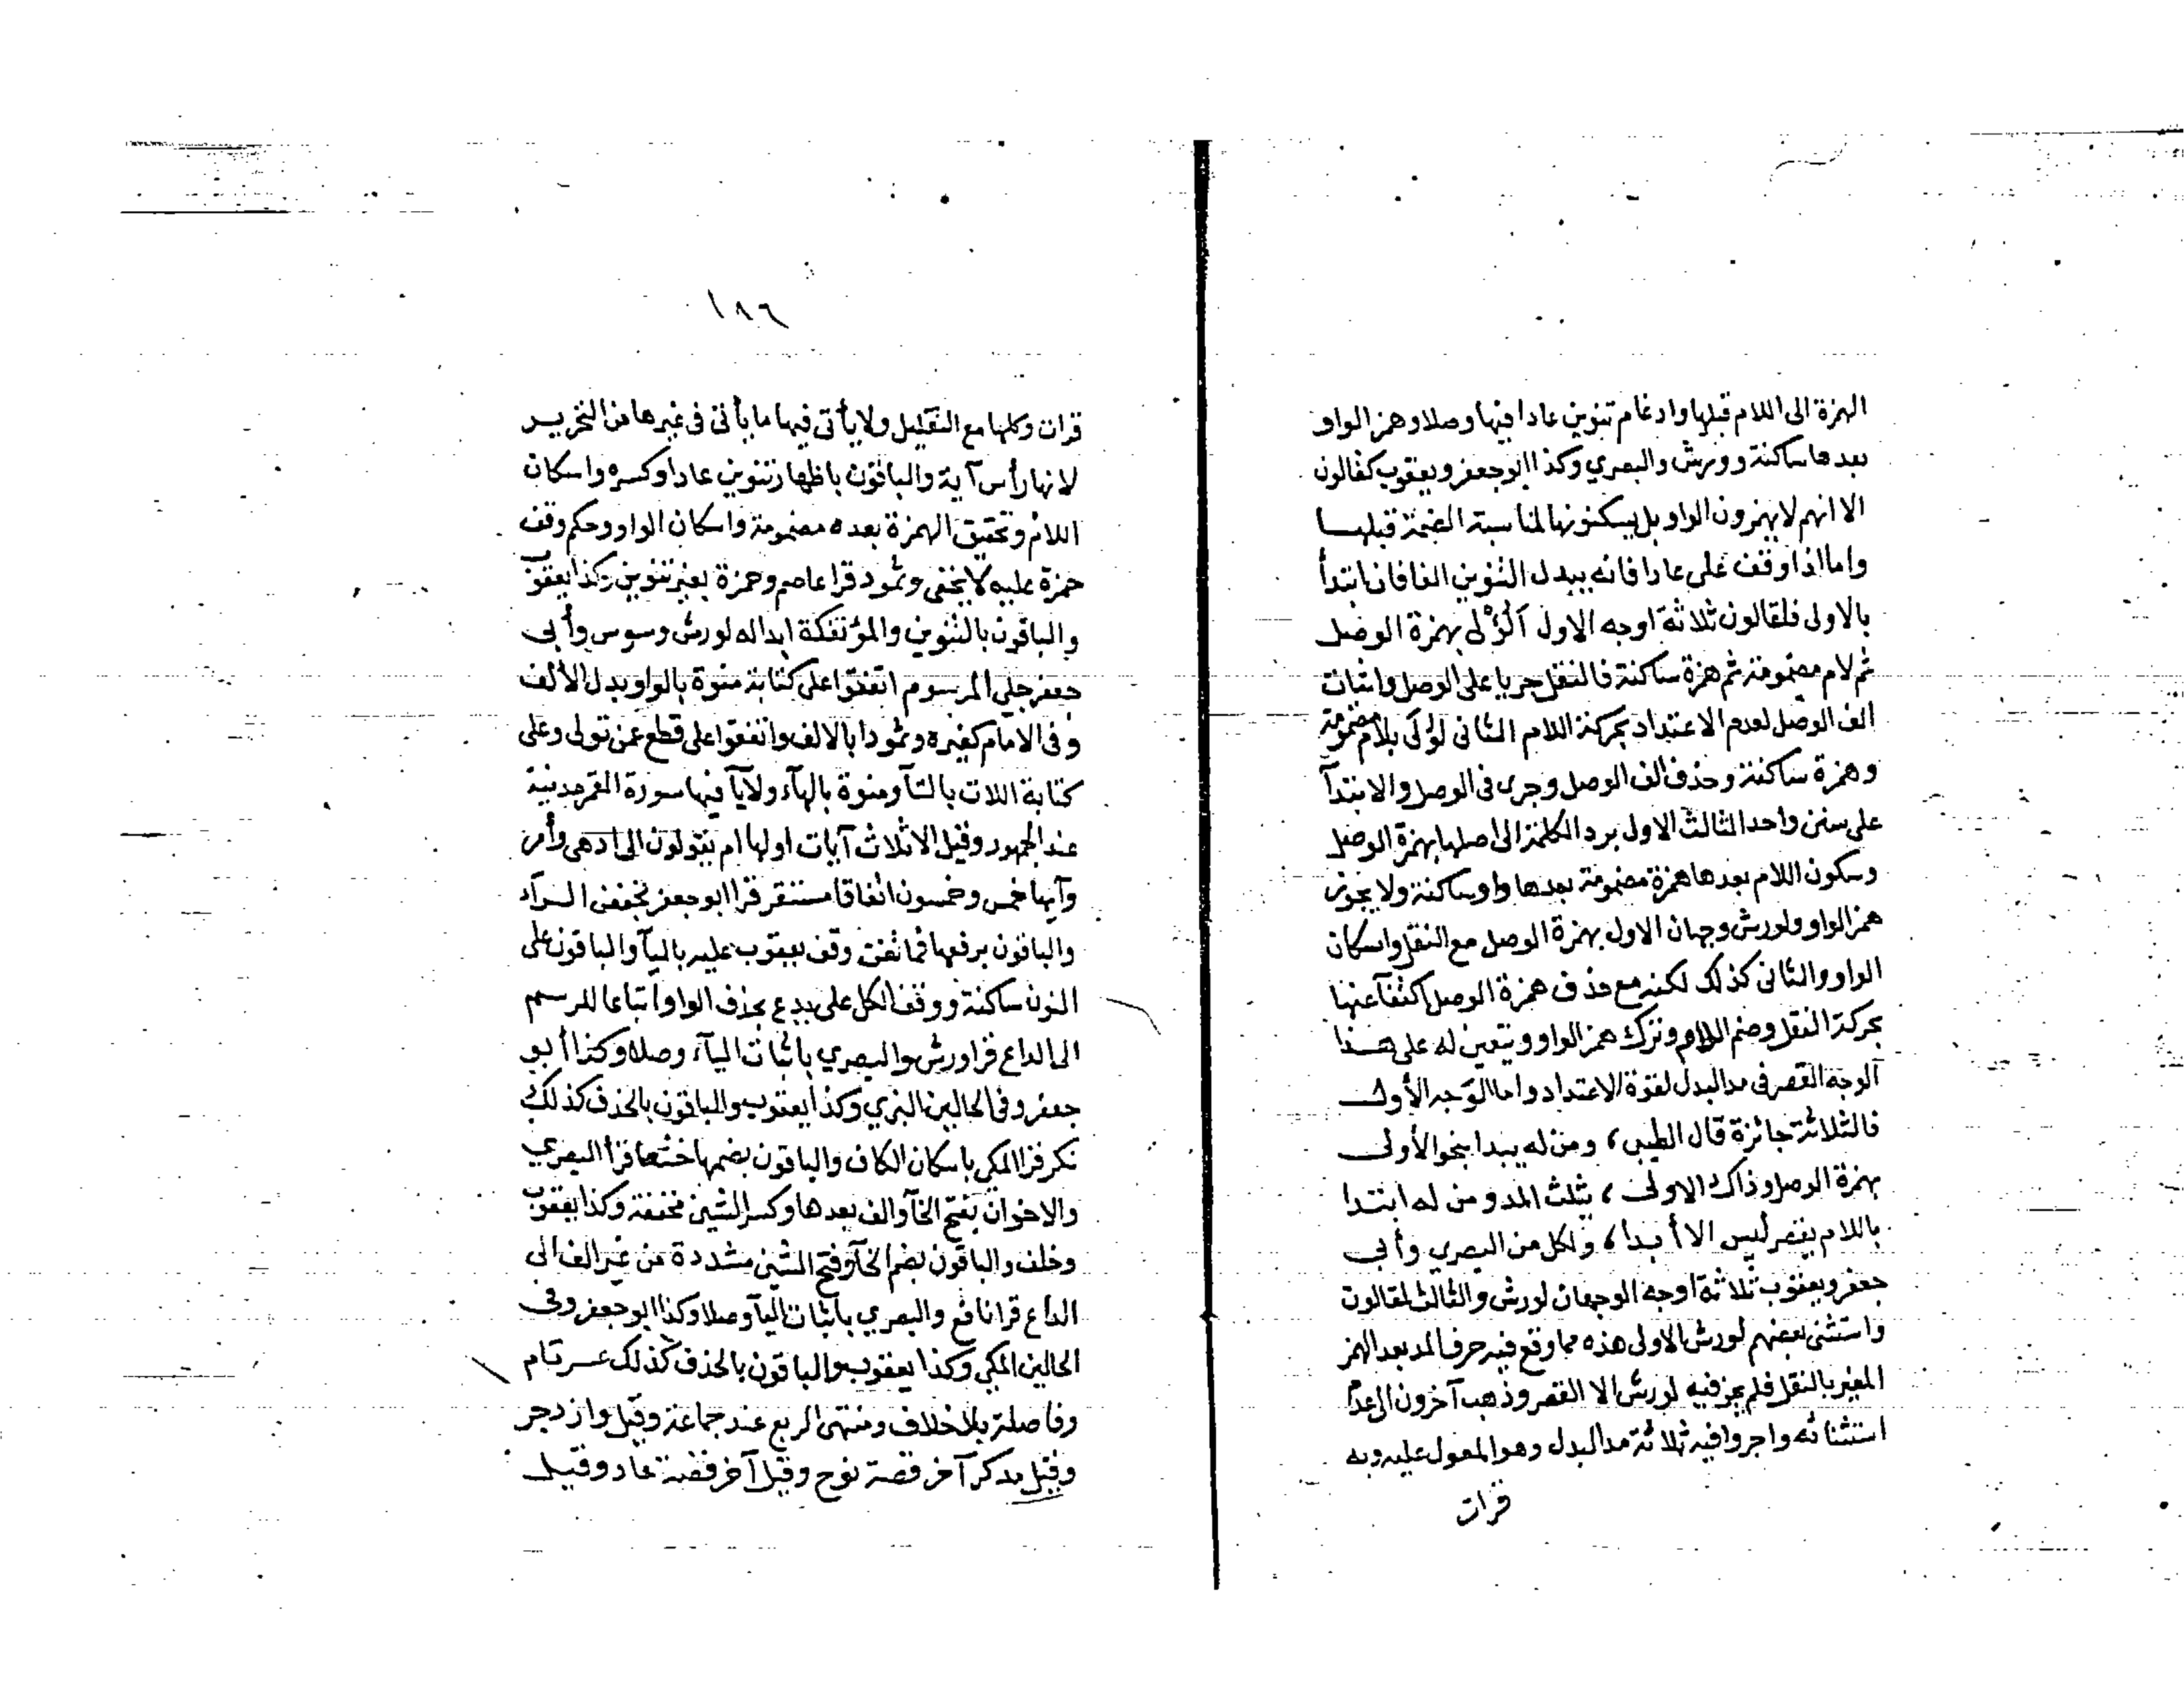 الهمزة الى اللام قبلها وادغام تنوين عادا فيها وصلا وهمز الواو
بعدها ساكنة وورش والبصري وكذا ابو جعفر ويعقوب كقالون
الا انهم لا يهمزون الواو بل يسكنونها لمناسبة الضمة قبلها
واما اذا وقف على عادا فانه يبدل التنوين الفا فان ابتدأ
بالاولى فلقالون ثلاثة اوجه الاول ألُؤْلى بهمزة الوصل
ثم لام مضمومة ثم همزة ساكنة فالنقل جريا على الوصل واثبات
الف الوصل لعدم الاعتداد بحركة اللام الثانى لؤلى بلام مضمومة
وهمزة ساكنة وحذف الف الوصل وجرى فى الوصل والابتدآ
على سنن واحد الثالث الاولى برد الكلمة الى اصلها بهمزة الوصل
وسكون اللام بعدها همزة مضمومة بعدها واو ساكنة ولا يجوز
همز الواو ولورش وجهان الاول بهمزة الوصل مع النقل واسكان
الواو والثانى كذلك لكنه مع حذف همزة الوصل اكتفآ عنها
بحركة النقل وضم اللام وترك همز الواو ويتعين له على هذا
الوجه القصر فى مد البدل لقوة الاعتداد واما الوجه الأول
فالثلاثة جائزة قال الطيبى ، ومن له يبدا بنحو الأولى
بهمزة الوصل وذاك الاولى ، يثلث المد ومن له ابتدا
باللام بقصر ليس الا أبدا ، ولكل من البصري وأبى
جعفر ويعقوب ثلاثة اوجه الوجهان لورش والثالث لقالون
واستثنى بعضهم لورش الاولى هذه مما وقع فيه حرف المد بعد الهمز
المغير بالنقل فلم يجز فيه لورش الا القصر وذهب آخرون الى عدم
استثنائه واجروا فيه ثلاثة مد البدل وهو المعول عليه وبه
قرات
١٨٦
قرات وكلها مع التقليل ولا يأتى فيها ما يأتى فى غيرها من التحرير
لانها رأس آية والباقون باظهار تنوين عادا وكسره واسكان
اللام وتحقيق الهمزة بعده مضمومة واسكان الواو وحكم وقف
حمزة عليه لا يخفى وثمود قرا عاصم وحمزة بغير تنوين وكذا يعقوب
والباقون بالتنوين والمؤتفكة ابداله لورش وسوس وأبى
جعفر جلي المرسوم اتفقوا على كتابة منوة بالواو بدل الألف
وفى الامام كغيره وثمودا بالالف واتفقوا على قطع عن من تولى وعلى
كتابة اللات بالتآ ومنوة بالهآء ولا يآ فيها سورة القمر مدنية
عند الجمهور وقيل الا ثلاث آيات اولها ام يقولون الى ادهى وأمر
وآيها خمس وخمسون اتفاقا مستقر قرا ابو جعفر بخفض الرآء
والباقون برفعها فما تغن وقف يعقوب عليه باليآ والباقون على
النون ساكنة ووقف الكل على يدع بحذف الواو اتباعا للرسم
الى الداع قرا ورش والبصري باثبات اليآء وصلا وكذا أبو
جعفر وفى الحالين البزي وكذا يعقوب والباقون بالحذف كذلك
نكر قرا المكي باسكان الكاف والباقون بضمها خشعا قرا البصري
والاخوان بفتح الخآ والف بعدها وكسر الشين مخففة وكذا يعقوب
وخلف والباقون بضم الخآ وفتح الشين مشددة من غير الف الى
الداع قرا نافع والبصري باثبات اليآ وصلا وكذا ابو جعفر وفى
الحالين المكي وكذا يعقوب والباقون بالحذف كذلك عسر تام
وفاصلة بلا خلاف ومنتهى الربع عند جماعة وقيل وازدجر
وقيل مدكر آخر قصة نوح وقيل آخر قصة عاد وقيل